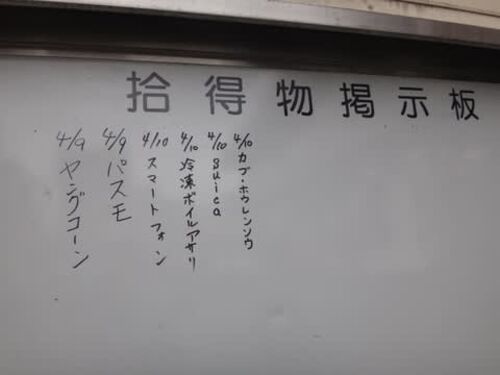 拾得物掲示板
4/10 カブ・ホウレンソウ
4/10 suica
4/10 冷凍ボイルアサリ
4/10 スマートフォン
4/9 パスモ
4/9 ヤングコーン